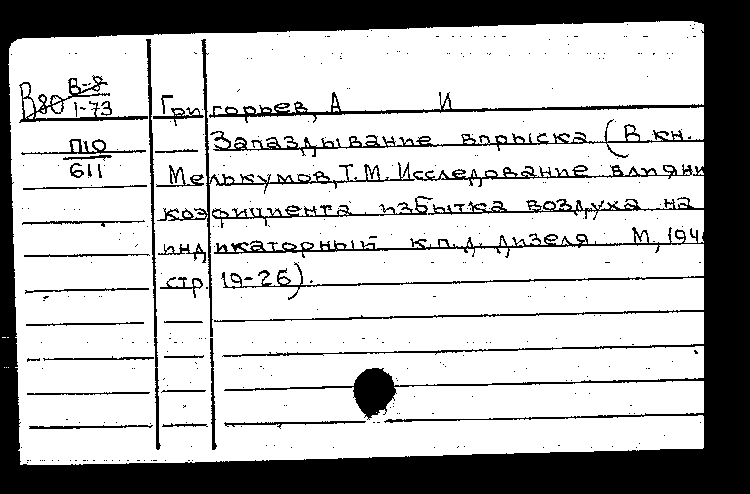 В80 В-8
1-73
Григорьев, А И
П10
611
Запаздывание впрыска (В кн.
Мелькумов, Т.М. Исследование влияни
коэфициента избытка воздуха на
индикаторный к.п.д. дизеля. М, 194
стр. 19-26).